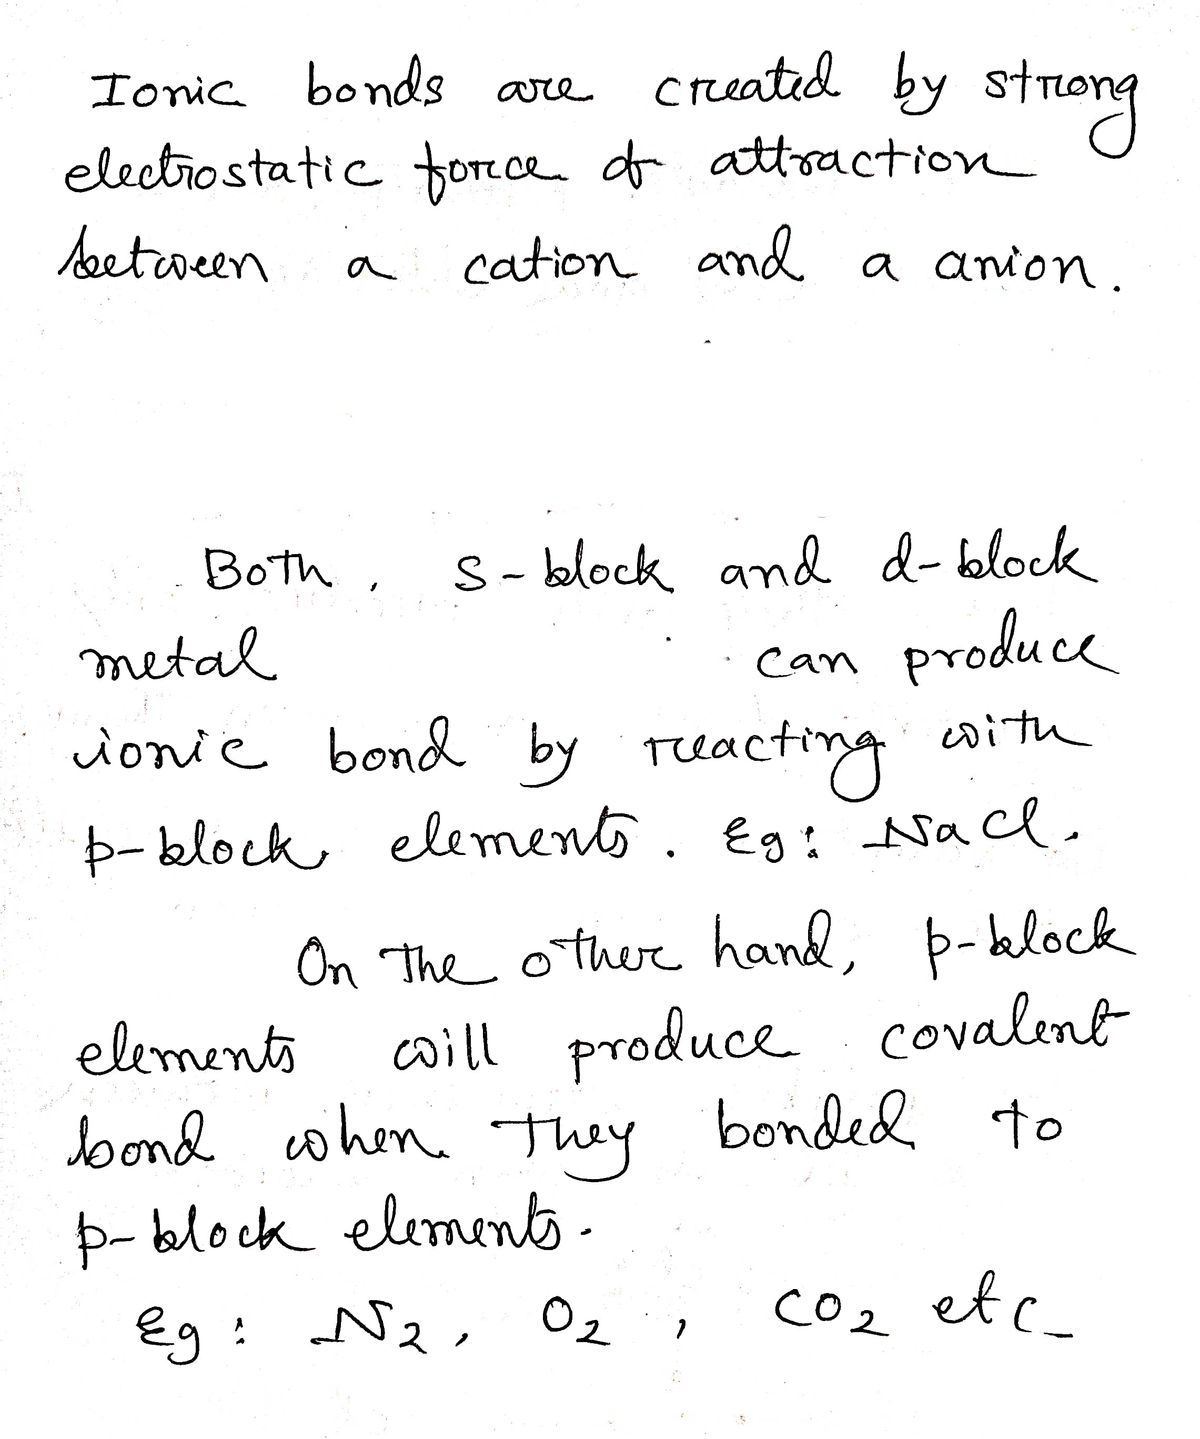 Ionic bonds are created by strong
electrostatic force of attraction
between a cation and a anion.
Both, s-block and d-block
metal can produce
ionic bond by reacting with
p-block elements. Eg: NaCl.
On the other hand, p-block
elements will produce covalent
bond when they bonded to
p-block elements.
Eg: N₂, O₂, CO₂ etc